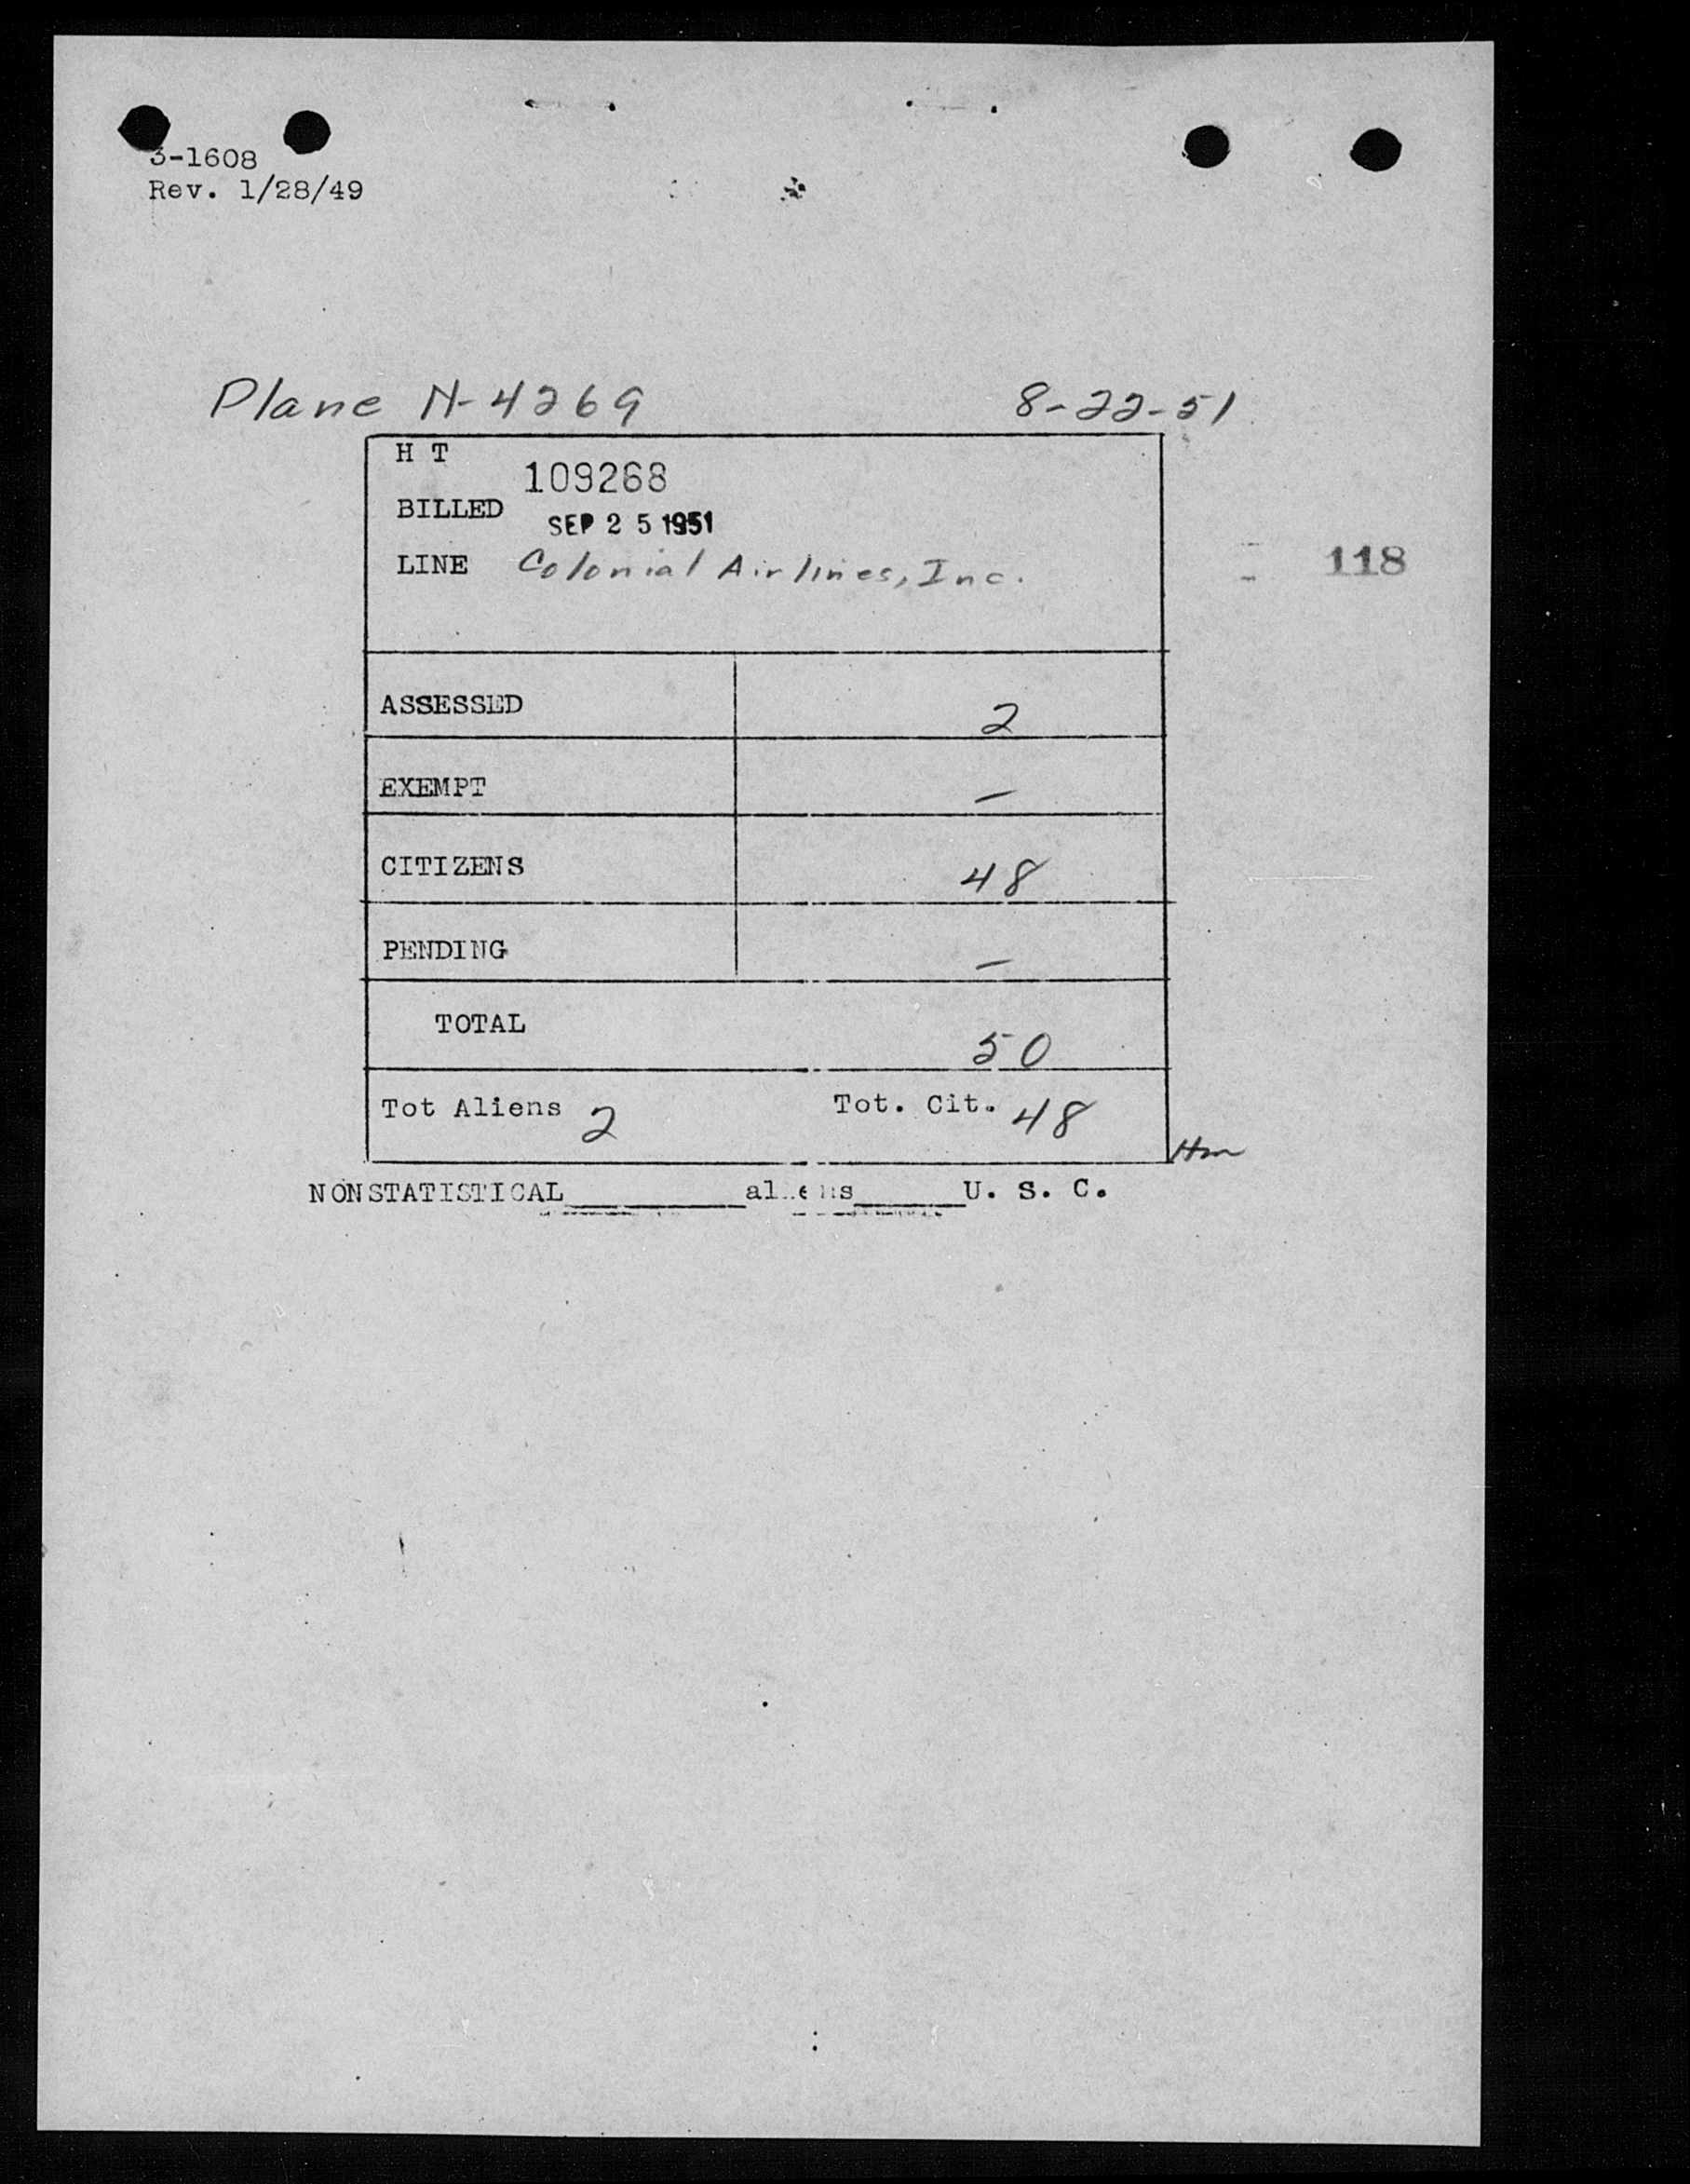 3-1608
Rev. 1/28/49
Plane N-4269
8-22-51
H T
109268
BILLED
SEP 25 1951
LINE Colonial Airlines, Inc.
118
ASSESSED 2
EXEMPT —
CITIZENS 48
PENDING —
TOTAL 50
Tot Aliens 2 Tot. Cit. 48
NONSTATISTICAL________aliens_____U. S. C.